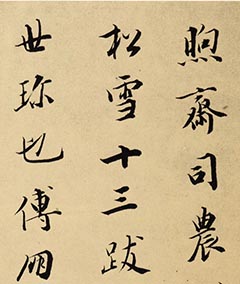 煦齋司農
松雪十三跋
世珎也傅朋